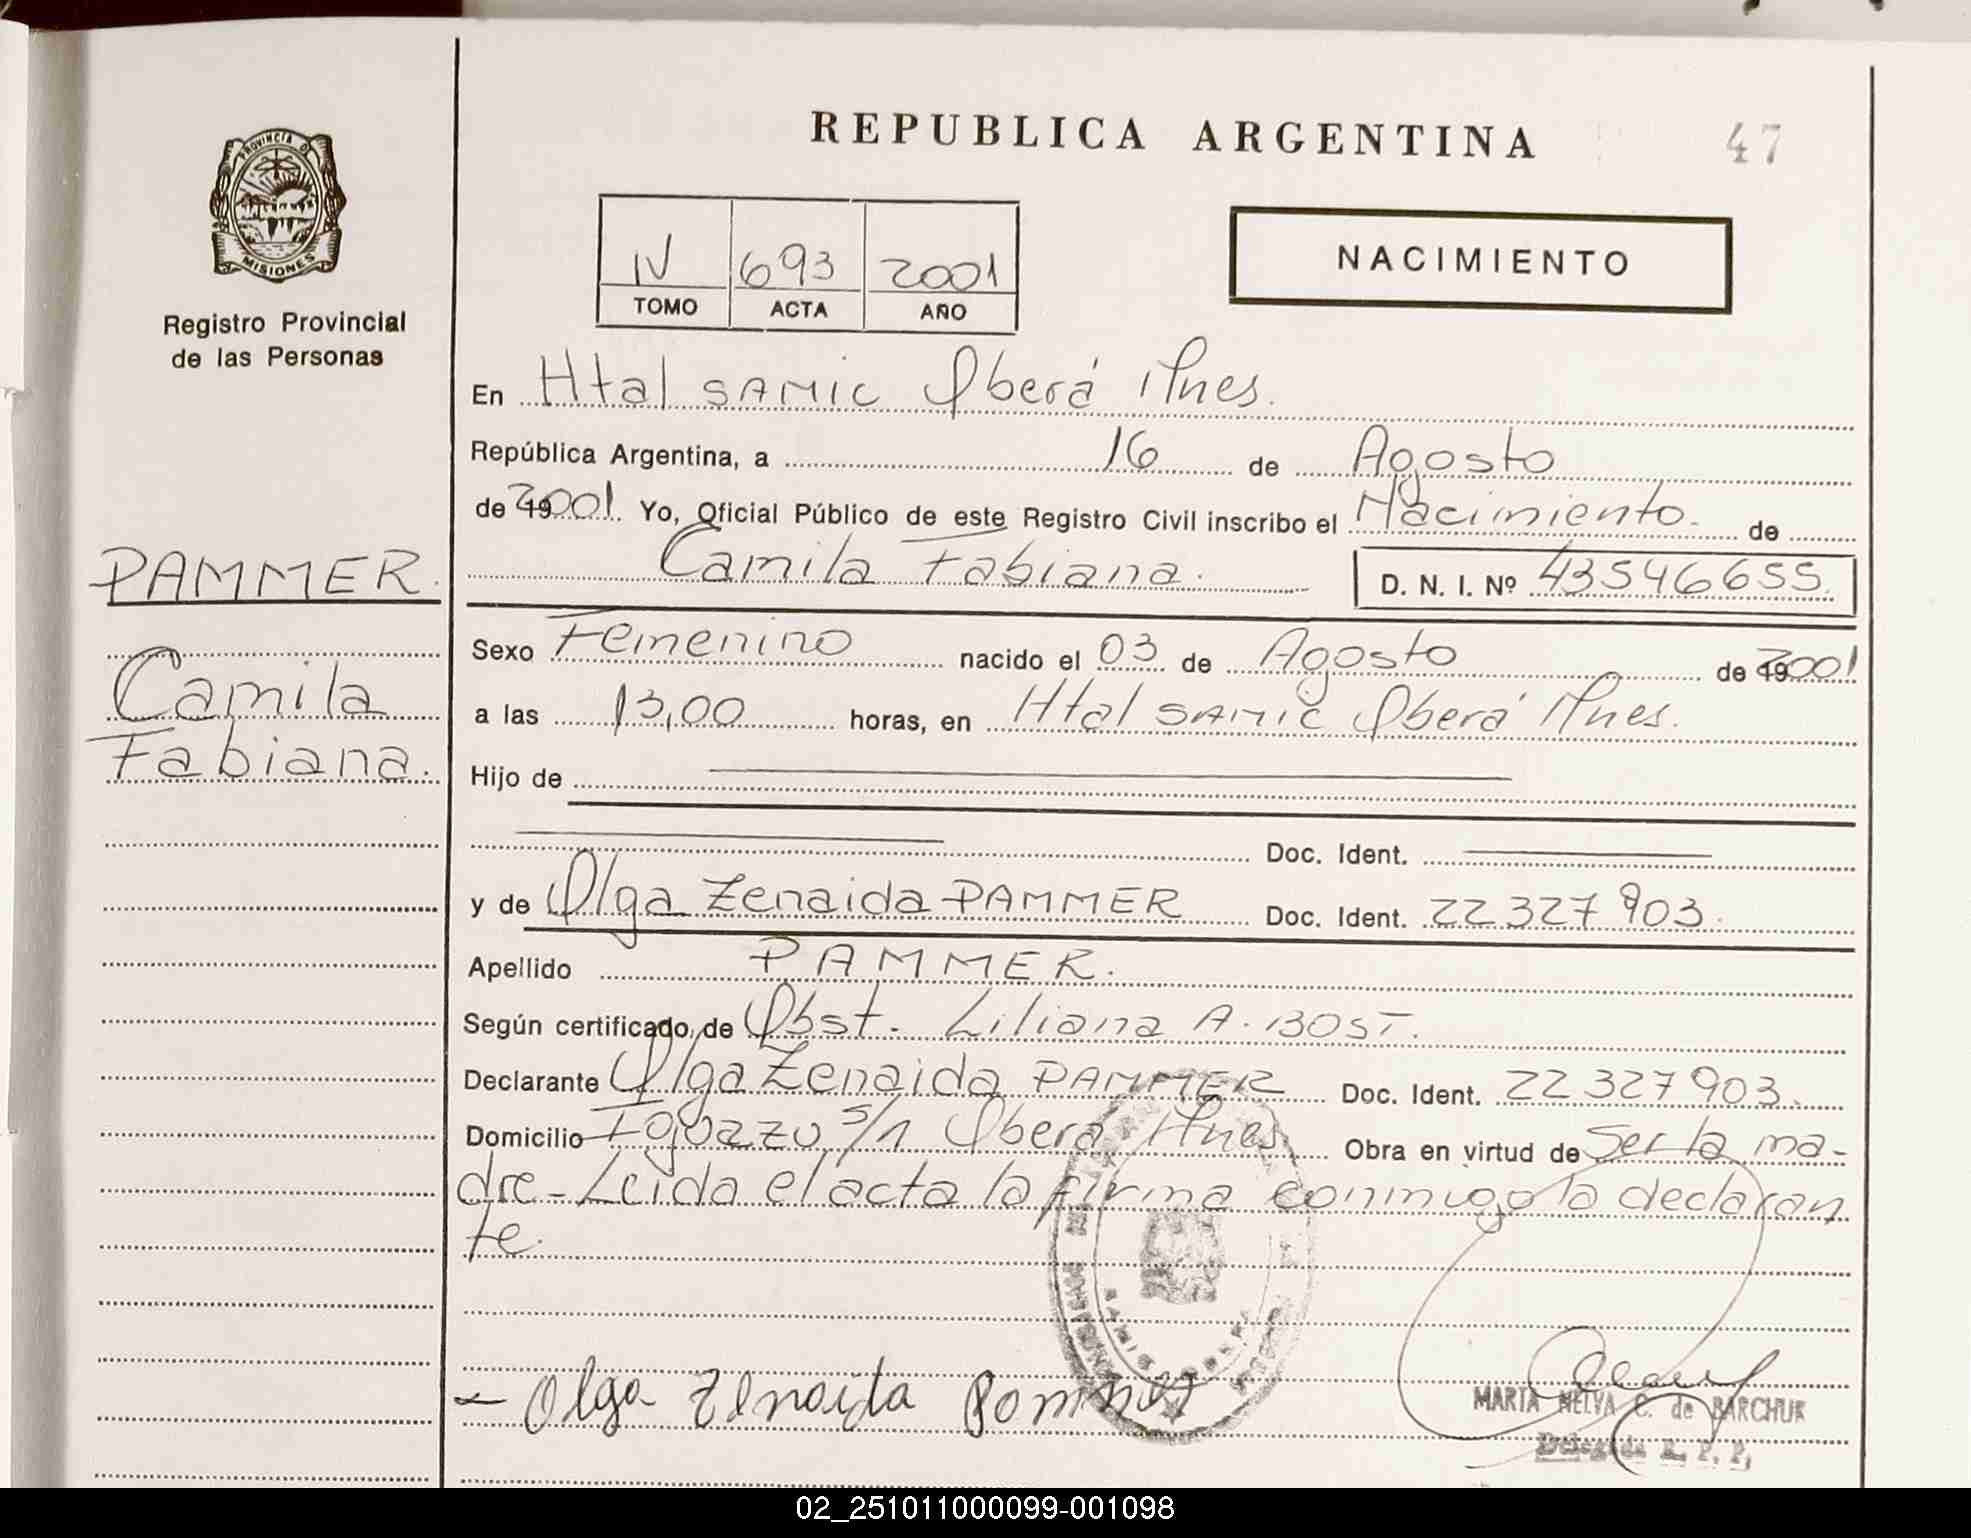 REPUBLICA ARGENTINA
47
PROVINCIA D
MISIONES
Registro Provincial
de las Personas
IV 693 2001
TOMO ACTA AÑO
NACIMIENTO
En Htal SAMIC Oberá Mnes.
República Argentina, a 16 de Agosto
de 2001. Yo, Oficial Público de este Registro Civil inscribo el Nacimiento. de
Camila Fabiana. D. N. I. Nº 43546655.
PAMMER.
Camila
Fabiana.
Sexo Femenino nacido el 03 de Agosto de 2001
a las 13,00 horas, en Htal SAMIC Oberá Mnes.
Hijo de
Doc. Ident.
y de Olga Zenaida PAMMER Doc. Ident. 22 327 903.
Apellido PAMMER.
Según certificado de Obst. Liliana A. BOST.
Declarante Olga Zenaida PAMMER Doc. Ident. 22 327 903.
Domicilio s/n Oberá Mnes Obra en virtud de Ser la ma-
dre - Leida el acta la firma conmigo la declaran
te.
- Olga Zenaida Pommer
MARTA NELVA C. de BARCHUK
Delegada R. P. P.
02_251011000099-001098